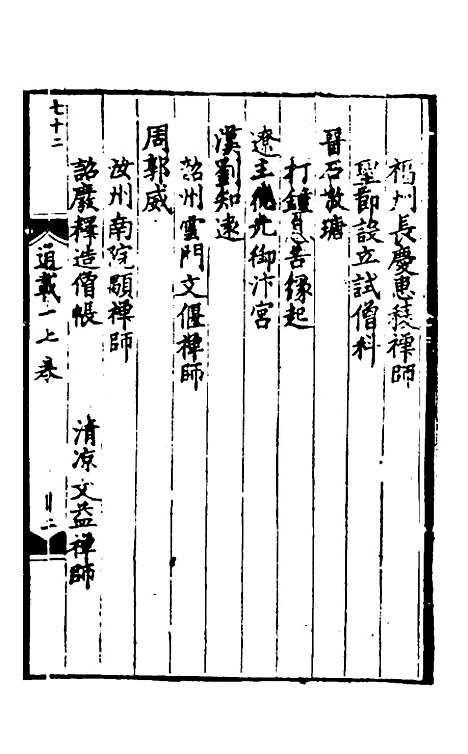 福州長慶惠稜禪師
聖節設立試僧科
晉石敬瑭
打鐘息苦緣起
遼主德光御汴宮
漢劉知遠
韶州雲門文偃禪師
周郭威
汝州南院顒禪師
詔廢釋造僧帳 清凉文益禪師
通載一上卷 廿二
七十二